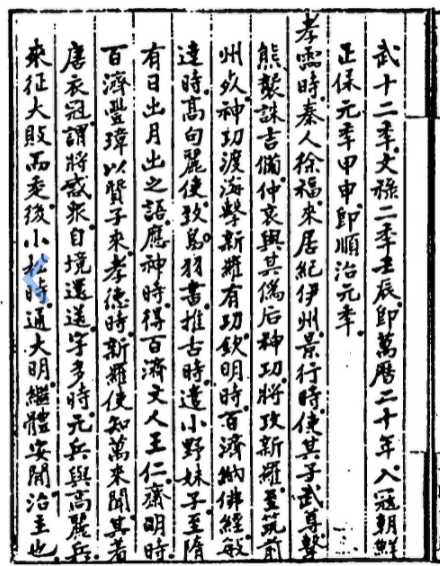 武十二秊文祿二秊壬辰即萬曆二十年入寇朝鮮
正保元秊甲申即順治元秊
孝霊時秦人徐福來居紀伊州景行時使其子武尊擊
熊襲誅吉備仲哀與其偽后神功將攻新羅至筑前
州歿神功渡海擊新羅有功欽明時百濟納佛經敏
達時高句麗使致烏羽書推古時遣小野妹子至隋
有日出月出之語應神時得百濟文人王仁齋明時
百濟豐璋以質子來孝德時新羅使知萬來聞其著
唐衣冠謂將惑衆自境還送宇多時元兵與高麗兵
來征大敗而走後小松時通大明繼體安閒治主也